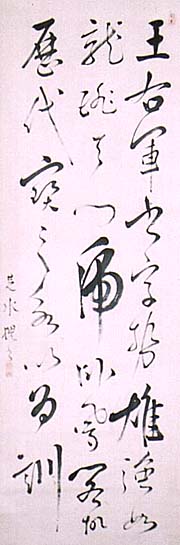 王右軍書字勢雄強如
龍跳天門虎臥鳳閣故
歷代寶之永以為訓